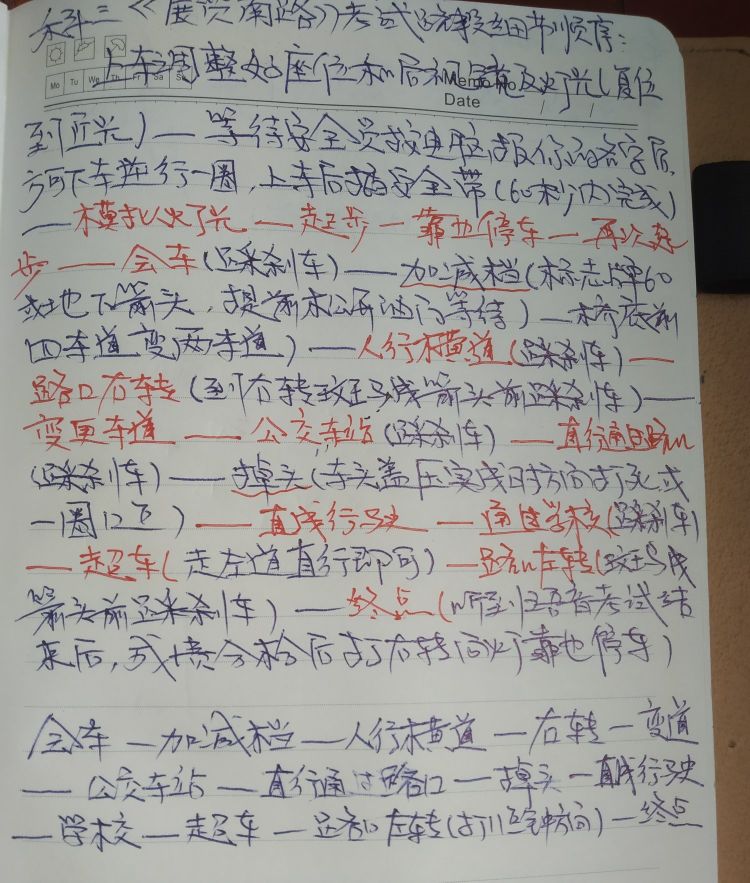 科三《展览南路》考试路线细节顺序:
上车调整好座位和后视镜及灯光(复位
Mo Tu We Th Fr Sa Su
Memo No.
Date / /
到近光)—等待安全员按电脑报你的名字后,
方可下车逆行一圈,上车后插安全带(60秒内完成)
—模拟灯光—起步—靠边停车—再次起
步—会车(踩刹车)—加减档(标志牌60
或地下箭头,提前松油门等待)—桥底前
四车道变两车道)—人行横道(踩刹车)—
路口右转(到右转斑马线箭头前踩刹车)—
变更车道—公交车站(踩刹车)—直行通过路口
(踩刹车)—掉头(车头盖压实线时方向打死或
一圈以下)—直线行驶—通过学校(踩刹车)
—超车(走左道直行即可)—路口左转(斑马线
箭头前踩刹车)—终点(听到语音考试结
束后,成绩合格后打右转向灯靠边停车)
会车—加减档—人行横道—右转—变道
—公交车站—直行通过路口—掉头—直线行驶
—学校—超车—路口左转(打11点钟方向)—终点